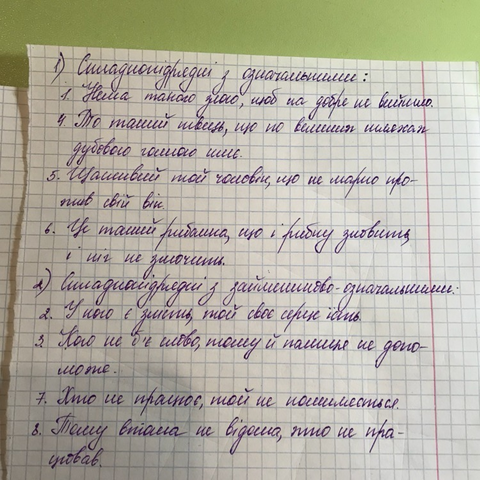 1) Складнопідрядні з означальними:
1. Нема такого злого, щоб на добре не вийшло.
4. То такий швець, що по великих шляхах
дубовою голкою шиє.
5. Щасливий той чоловік, що не марно про-
жив свій вік.
6. Це такий рибалка, що і рибку зловить,
і ніг не змочить.
2) Складнопідрядні з займенниково-означальними:
2. У кого є злість, той своє серце їсть.
3. Кого не б'є слово, тому й палиця не допо-
може.
7. Хто не прагнос, той не помиметься.
8. Тому втома не відома, хто не пра-
цював.